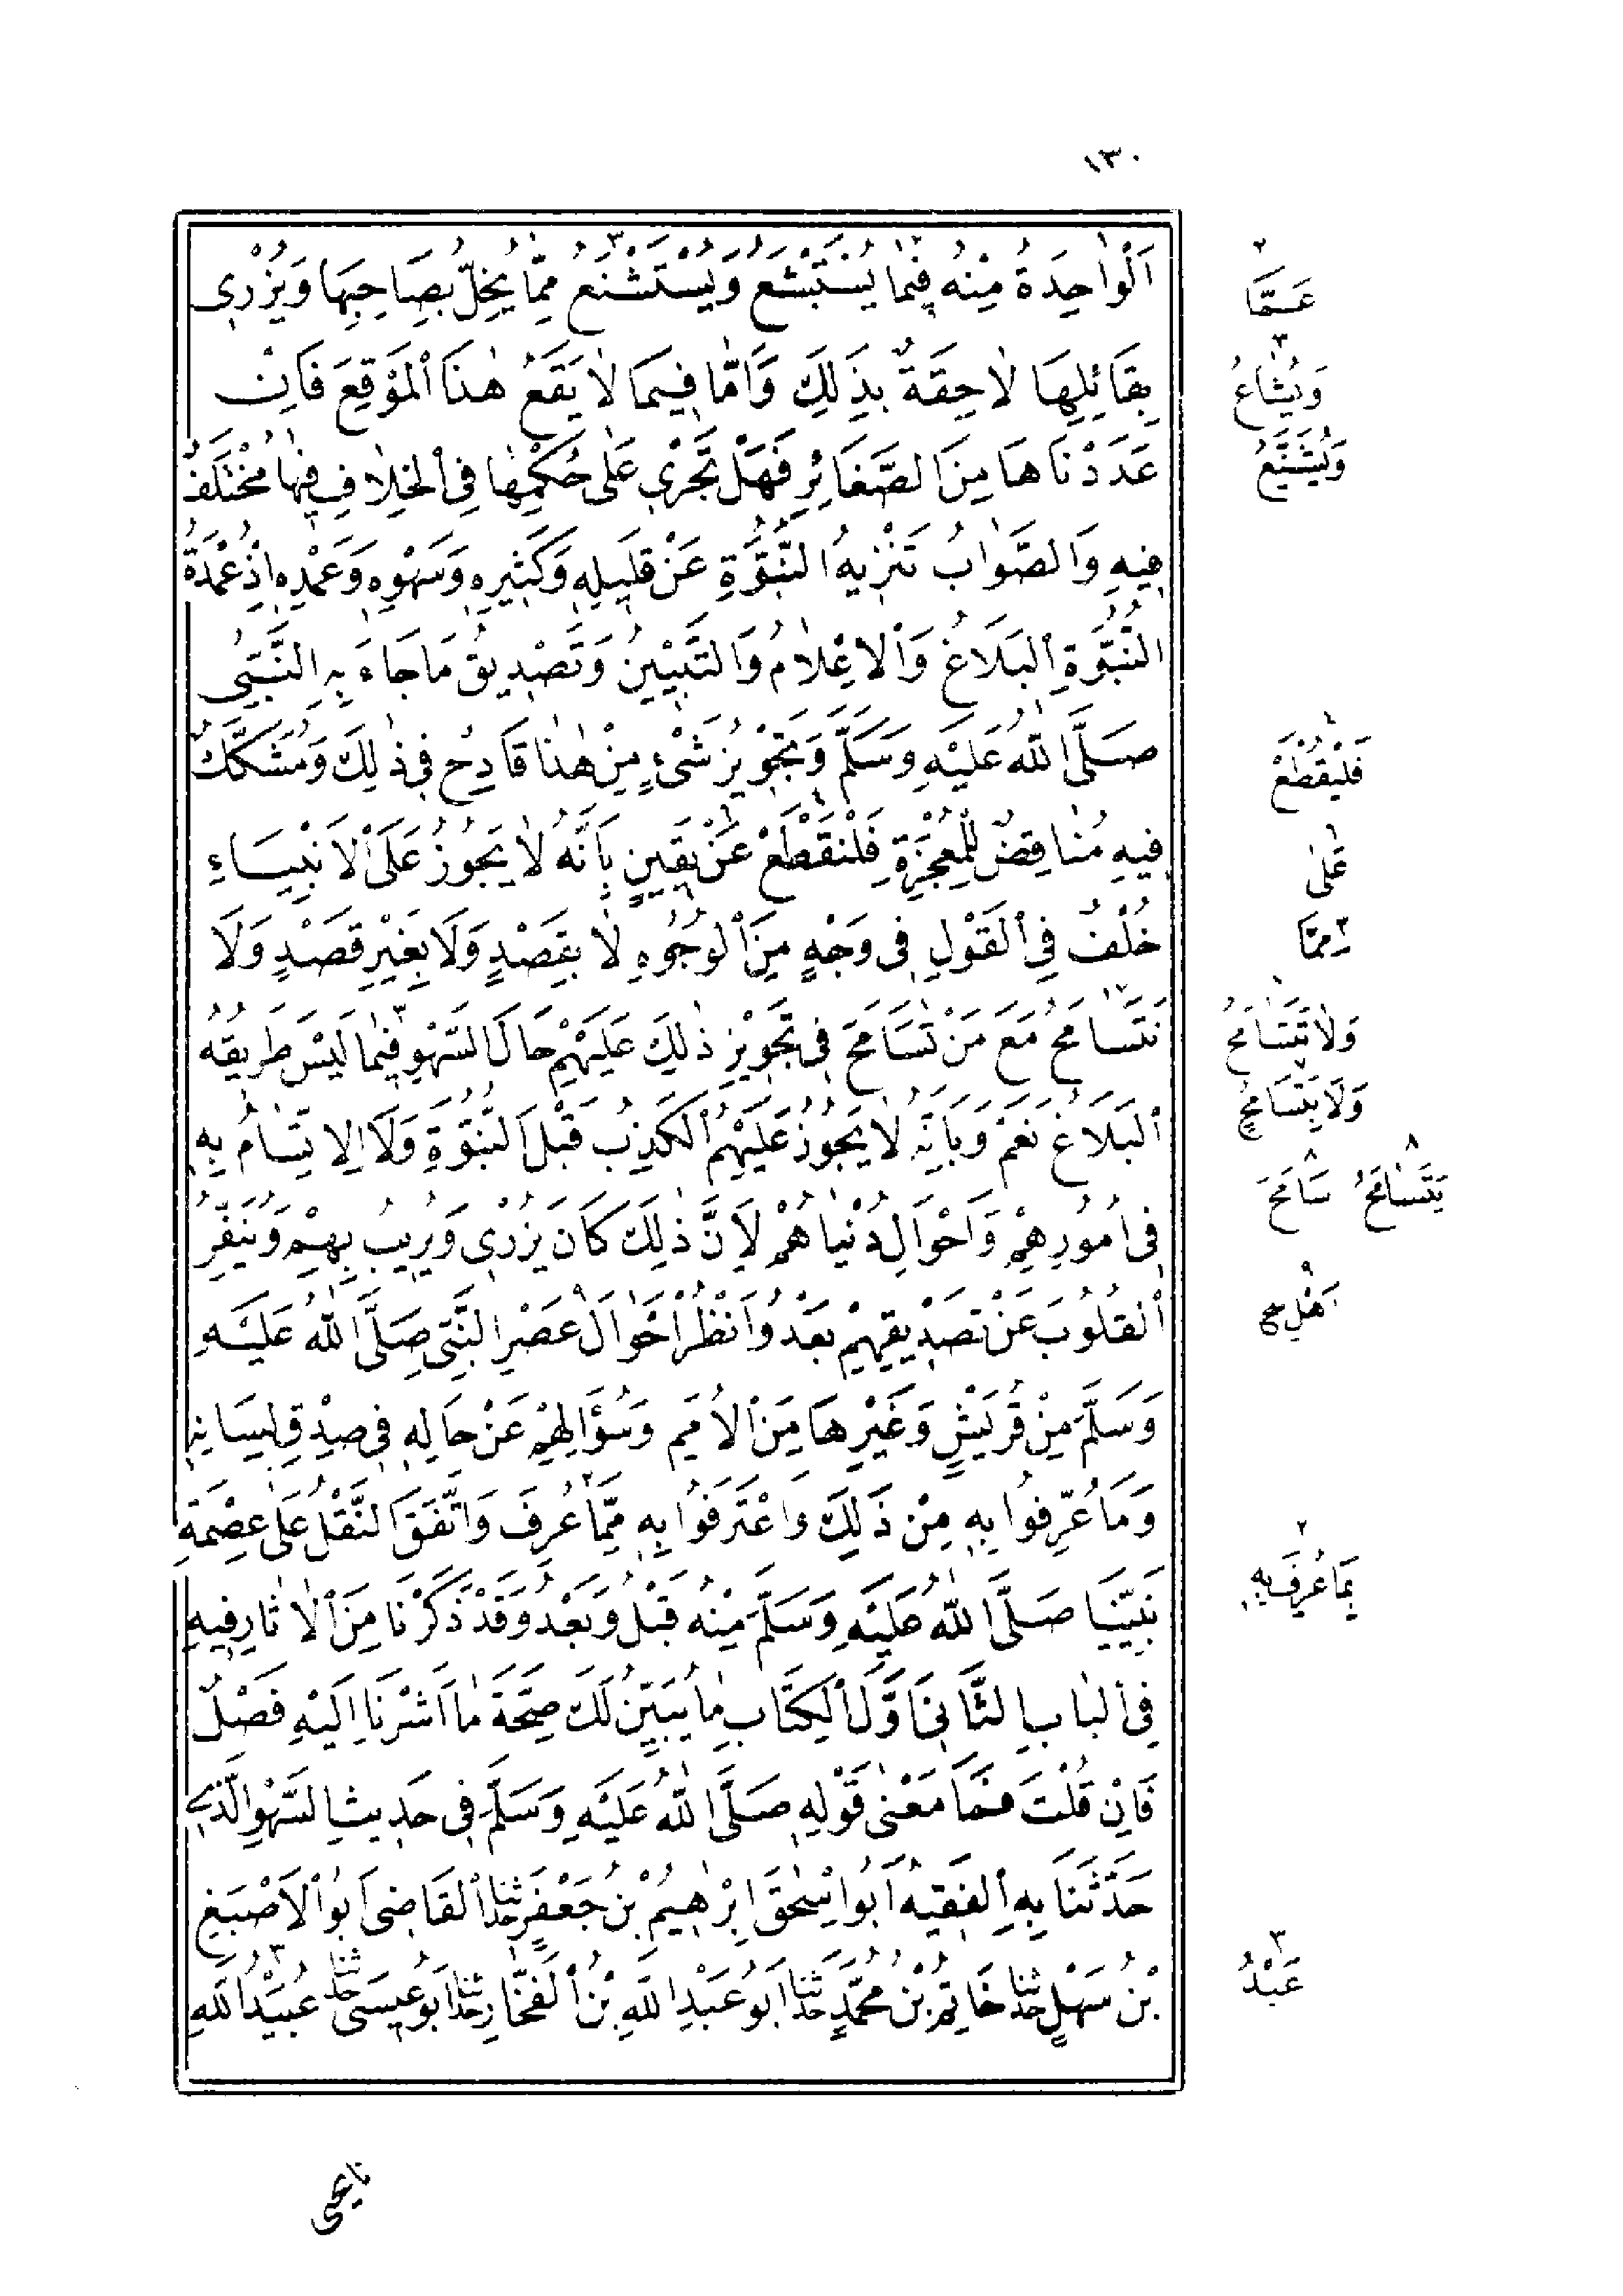 ١٣٠
اَلْوٰاحِدَةُ مِنْهُ فِيمَا يُسْتَبْشَعُ وَيُسْتَشْنَعُ مِمَّا يُخِلُّ بِصَاحِبِهَا وَيُزْرِى
بِقَائِلِهَا لَاحِقَةٌ بِذَلِكَ وَاَمَّا فِيمَا لَا يَقَعُ هٰذَا الْمَوْقِعَ فَاِنْ
عَدَدْنَاهَا مِنَ الصَّغَائِرِ فَهَلْ تَجْرِى عَلٰى حُكْمِهَا فِى الْخِلَافِ فِيهَا مُخْتَلَفٌ
فِيهِ وَالصَّوٰابُ تَنْزِيهُ النُّبُوَّةِ عَنْ قَلِيلِهِ وَكَثِيرِهِ وَسَهْوِهِ وَعَمْدِهِ اِذْ عُمْدَةُ
النُّبُوَّةِ الْبَلَاغُ وَالْاِعْلَامُ وَالتَّبْيِينُ وَتَصْدِيقُ مَا جَاءَ بِهِ النَّبِىُّ
صَلَّى اللّٰهُ عَلَيْهِ وَسَلَّمَ وَتَجْوِيزُ شَىْءٍ مِنْ هٰذَا قَادِحٌ فِى ذٰلِكَ وَمُشَكِّكٌ
فِيهِ مُنَاقِضٌ لِلْمُعْجِزَةِ فَلْنَقْطَعْ عَنْ يَقِينٍ بِاَنَّهُ لَا يَجُوزُ عَلَى الْاَنْبِيَاءِ
خُلْفٌ فِى الْقَوْلِ فِى وَجْهٍ مِنَ الْوُجُوهِ لَا بِقَصْدٍ وَلَا بِغَيْرِ قَصْدٍ وَلَا
نَتَسَامَحُ مَعَ مَنْ تَسَامَحَ فِى تَجْوِيزِ ذٰلِكَ عَلَيْهِمْ حَالَ السَّهْوِ فِيمَا لَيْسَ طَرِيقُهُ
الْبَلَاغَ نَعَمْ وَبِاَنَّهُ لَا يَجُوزُ عَلَيْهِمُ الْكَذِبُ قَبْلَ النُّبُوَّةِ وَلَا الِاتِّسَامُ بِهِ
فِى اُمُورِهِمْ وَاَحْوَالِ دُنْيَاهُمْ لِاَنَّ ذٰلِكَ كَانَ يُزْرِى وَيُرِيبُ بِهِمْ وَيُنَفِّرُ
الْقُلُوبَ عَنْ تَصْدِيقِهِمْ بَعْدُ وَانْظُرْ اَحْوَالَ عَصْرِ النَّبِىِّ صَلَّى اللّٰهُ عَلَيْهِ
وَسَلَّمَ مِنْ قُرَيْشٍ وَغَيْرِهَا مِنَ الْاُمَمِ وَسُؤَالِهِمْ عَنْ حَالِهِ فِى صِدْقِ لِسَانِهِ
وَمَا عُرِّفُوا بِهِ مِنْ ذَلِكَ وَاعْتَرَفُوا بِهِ مِمَّا عُرِفَ وَاتَّفَقَ النَّقْلُ عَلٰى عِصْمَةِ
نَبِيِّنَا صَلَّى اللّٰهُ عَلَيْهِ وَسَلَّمَ مِنْهُ قَبْلُ وَبَعْدُ وَقَدْ ذَكَرْنَا مِنَ الْاٰثَارِ فِيهِ
فِى الْبَابِ الثَّانِى اَوَّلَ الْكِتَابِ مَا يُبَيِّنُ لَكَ صِحَّةَ مَا اَشَرْنَا اِلَيْهِ فَصْلٌ
فَاِنْ قُلْتَ فَمَا مَعْنٰى قَوْلِهِ صَلَّى اللّٰهُ عَلَيْهِ وَسَلَّمَ فِى حَدِيثِ السَّهْوِ الَّذِى
حَدَّثَنَا بِهِ الْفَقِيهُ اَبُو اِسْحٰقَ اِبْرٰهِيمُ بْنُ جَعْفَرٍ حدثنا الْقَاضِى اَبُو الْاَصْبَغِ
بْنُ سَهْلٍ حدثنا حَاتِمُ بْنُ مُحَمَّدٍ حدثنا اَبُو عَبْدِ اللّٰهِ بْنُ الْفَخَّارِ حدثنا اَبُو عِيسَى حدثنا عُبَيْدُ اللّٰهِ
٢
عَمَّا
٣
وَيُشَاعُ
وَيُشَنَّعُ
فَلْيُقْطَعْ
عَلٰى
مِمَّا
وَلَا تَتَسَامَحُ
وَلَا يَتَسَامَحُ
٨
يَتَسَامَحُ سَامَحَ
٩
اَهْلِ صح
٢
بِمَا عُرِفَ بِهِ
٣
عَبْدُ